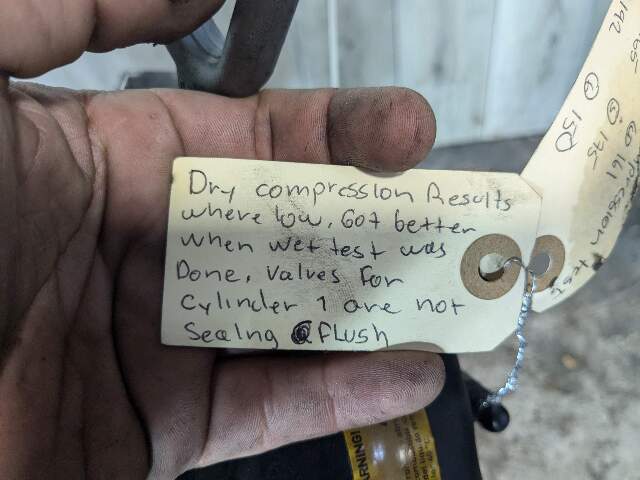 Dry compression Results
where low, Got better
when wet test was
Done, Valves For
Cylinder 1 are not
Sealng @ Flush
192
165
④ 150
⑤ 175
⑥ 161
test
WARNING!